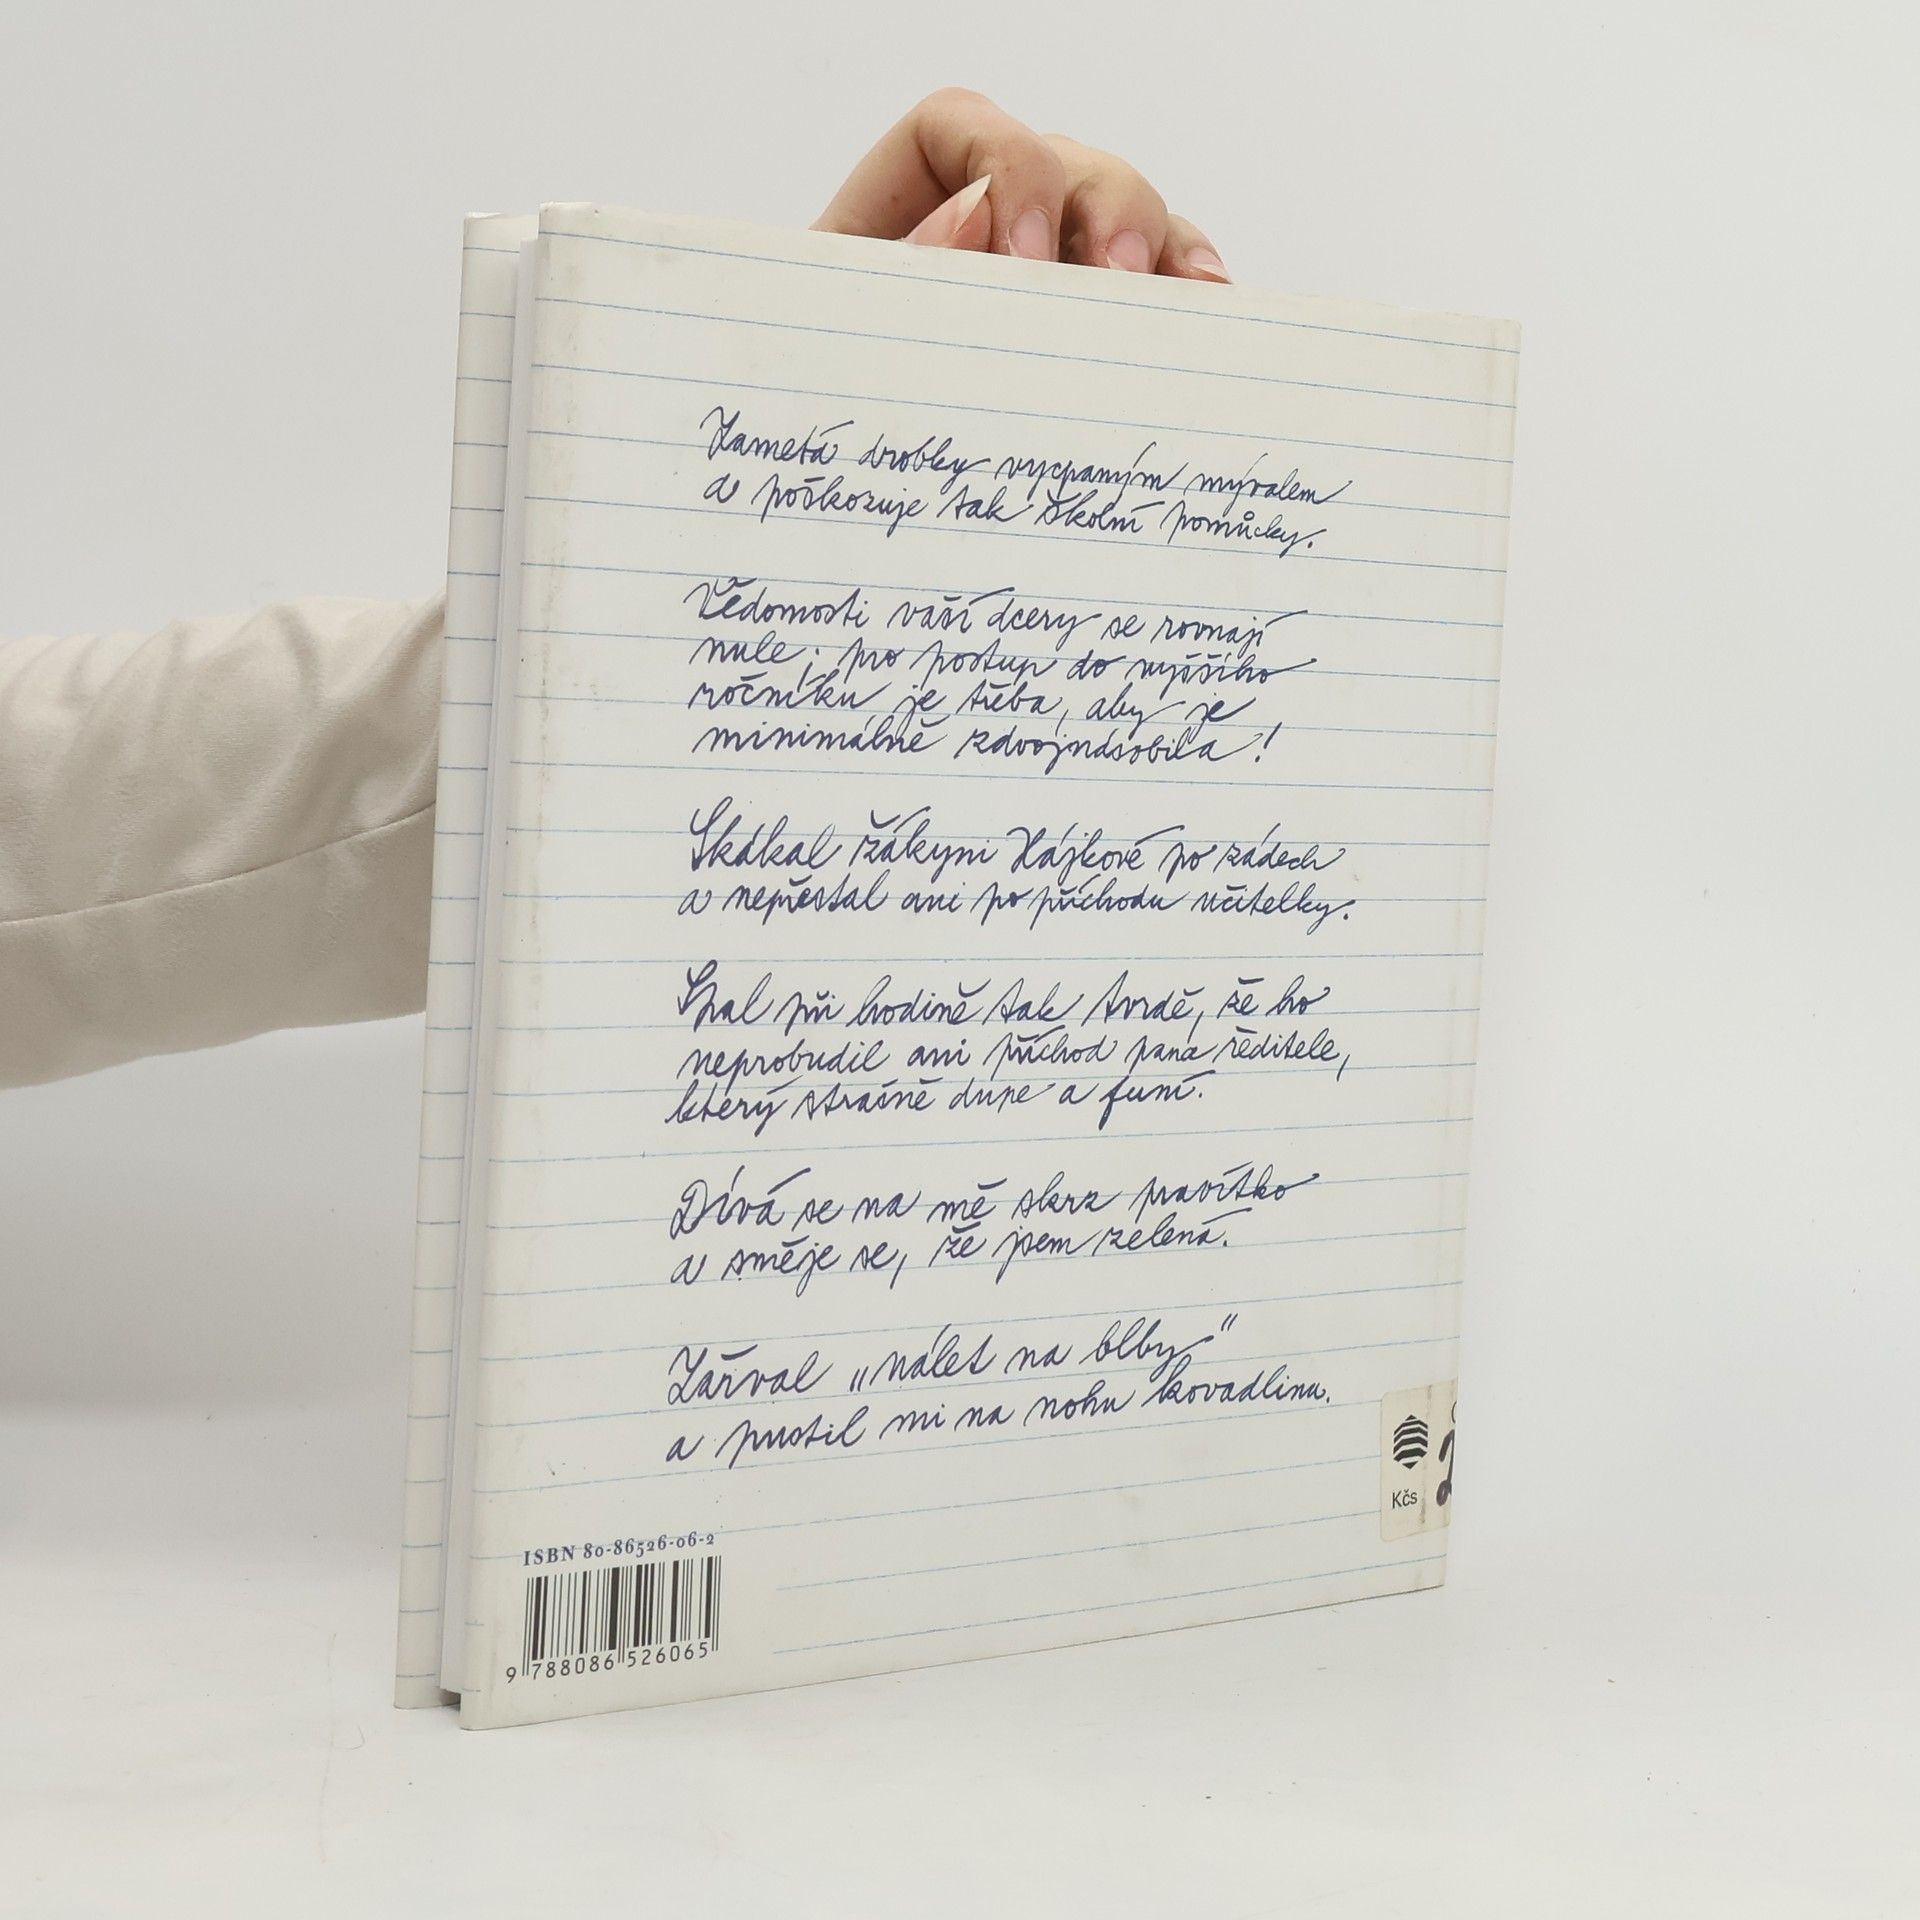 Zametá drobky vycpaným mývalem
a poškozuje tak školní pomůcky.
Vědomosti vaší dcery se rovnají
nule; pro postup do vyššího
ročníku je třeba, aby je
minimálně zdvojnásobila!
Skákal žákyni Hájkové po zádech
a nepřestal ani po příchodu učitelky.
Spal při hodině tak tvrdě, že ho
neprobudil ani příchod pana ředitele,
který strašně dupe a funí.
Dívá se na mě skrz pravítko
a směje se, že jsem zelená.
Zařval „nálet na blby"
a pustil mi na nohu kovadlinu.
Kčs
ISBN 80-86526-06-2
9 788086 526065